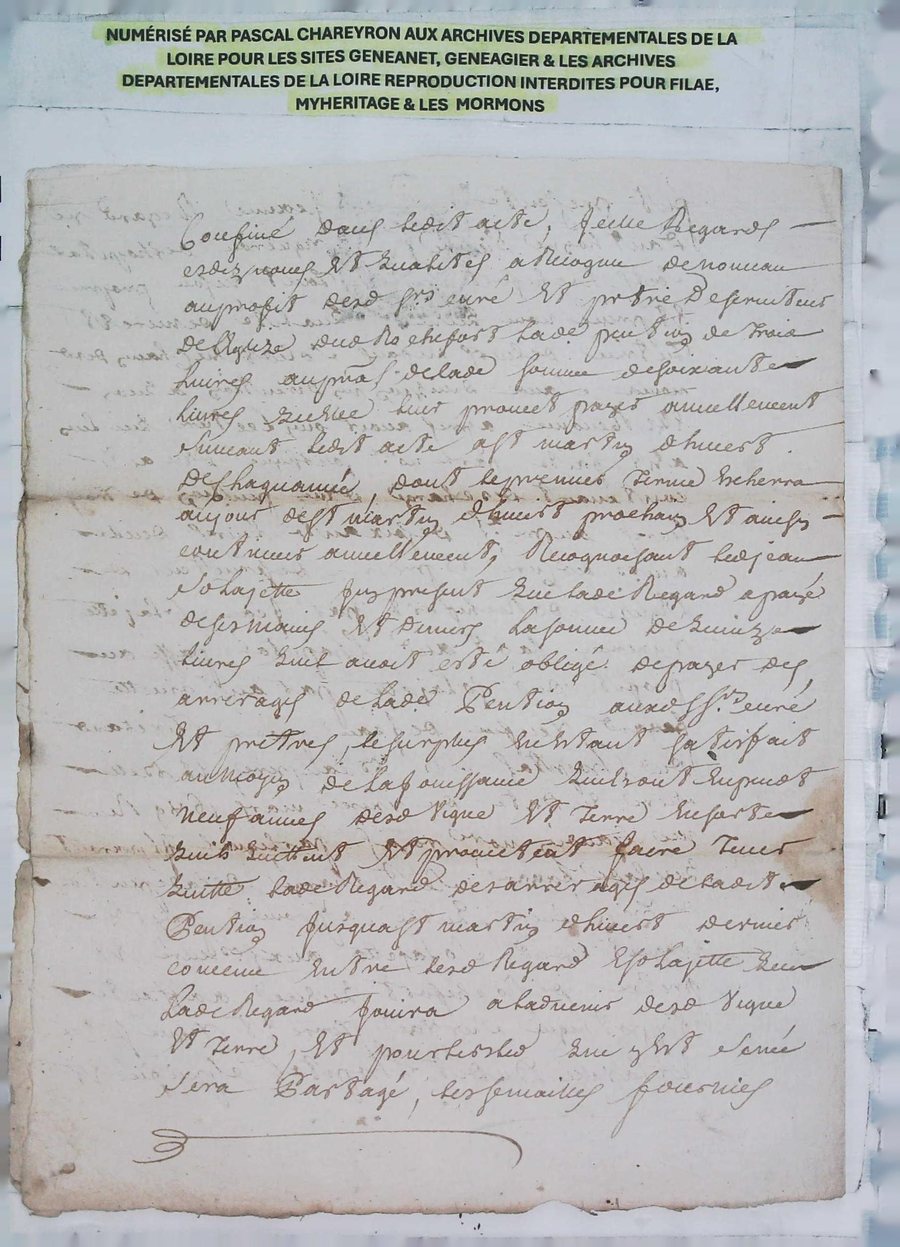 NUMÉRISÉ PAR PASCAL CHAREYRON AUX ARCHIVES DEPARTEMENTALES DE LA
LOIRE POUR LES SITES GENEANET, GENEAGIER & LES ARCHIVES
DEPARTEMENTALES DE LA LOIRE REPRODUCTION INTERDITES POUR FILAE,
MYHERITAGE & LES MORMONS
Confiné dans ledit acte, Jcelle Regards
esdz noms Et qualités a Recognu de nouveau
au profit desd srs curé Et prétre Desservituns
de leglize dud Rochefort lade pention de Trois
livres au de lade somme de soixante
livres quelle leur promet payer annuellement
suivant ledit acte a st martin dhivert
De Chaquannée, dont le premier Terme Escherra
aujour de st martin dhivert prochain Et ainsy
continuer annuellement, Recognoissant led jean
Solajette Jcy present que lade Regard a payé
de ses mains Et deniers la somme de quinze
livres quil avoit esté obligé de payer des
arrerages de lade Pention auxd srs curé
Et prétres, le surplus Enestant satisfait
au moyen de la Jouissance quils ont Eu pendt
neuf années desd Vigne Et Terre Ensorte
quils quittent Et promettent faire Tenir
quitte lade Regard des arrerages de ladit
Pention Jusqua st martin dhivert dernier
convenu Entre lesd Regard Solajette que
lade Regard Jouira a ladvenir desd Vigne
Et Terre, Et pour le bled que y Est semé
sera Partagé, les semailles fournies